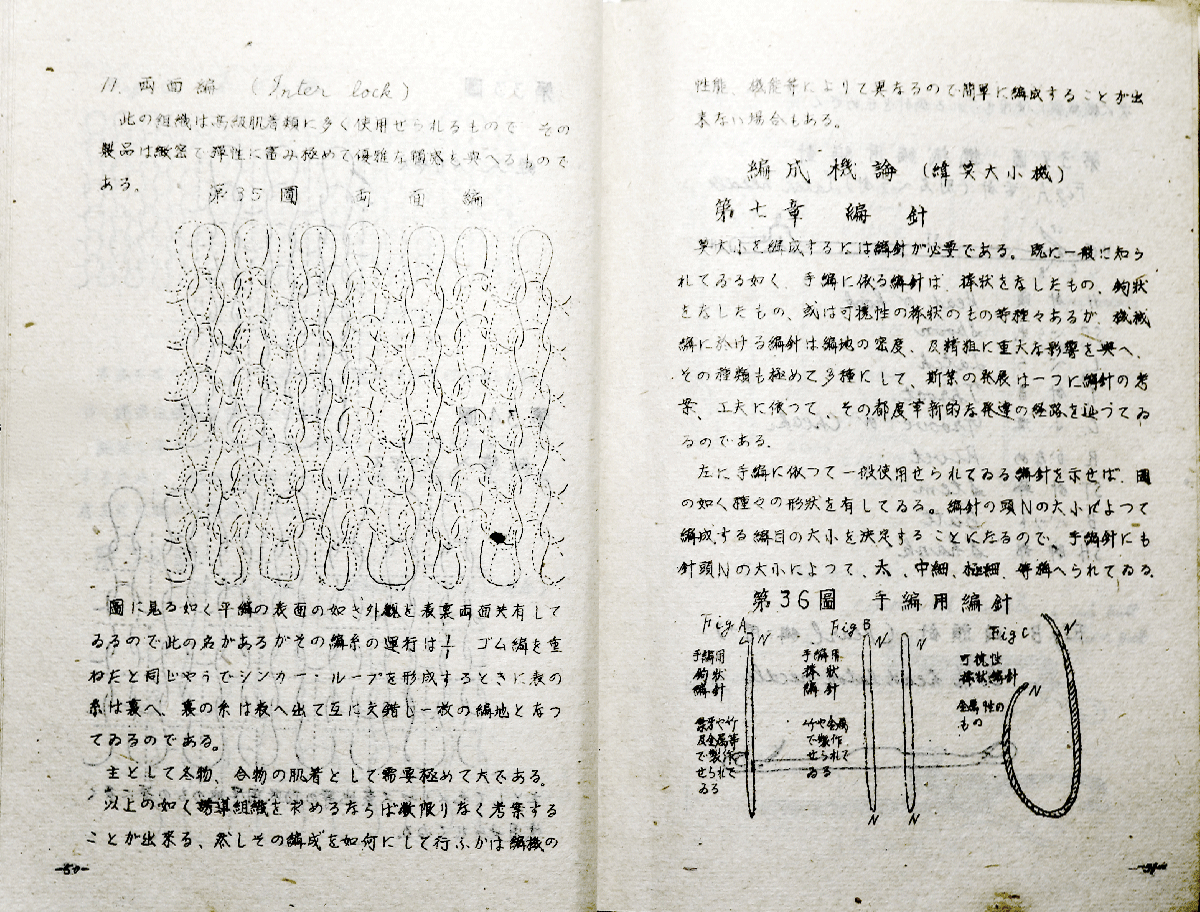 17. 両面編 (Inter lock)
此の組織は高級肌着類に多く使用せられるもので その
製品は緻密で弾性に富み極めて優雅な觸感を與へるもので
ある。
第35圖 両面編
圖に見る如く平編の表面の如き外観を表裏両面共有して
ゐるので此の名があるがその編糸の運行は 1/1 ゴム編を重
ねたと同じやうでシンカー・ループを形成するときに表の
糸は裏へ、裏の糸は表へ出て互に交錯し一枚の編地となつ
てゐるのである。
主として冬物、合物の肌着として需要極めて大である。
以上の如く誘導組織を求めるならば数限りなく考案する
ことが出来る、然しその編成を如何にして行ふかは編機の
-50-
性能、機能等によりて異なるので簡単に編成することが出
来ない場合もある。
編成機論 (緯莫大小機)
第七章 編針
莫大小を編成するには編針が必要である。既に一般に知ら
れてゐる如く、手編に依る編針は、棒状をなしたもの、鉤状
をなしたもの、或は可撓性の棒状のもの等種々あるが、機械
編に於ける編針は編地の密度、及精粗に重大な影響を與へ、
その種類も極めて多種にして、斯業の発展は一つに編針の考
案、工夫に依つて、その都度革新的な発達の経路を辿つてゐ
るのである。
左に手編に依つて一般使用せられてゐる編針を示せば、圖
の如く種々の形状を有してゐる。編針の頭Nの大小によつて
編成する編目の大小を決定することになるので、手編針にも
針頭Nの大小によつて、太、中細、極細、等構へられてゐる。
第36圖 手編用編針
Fig A
N
手編用
鉤状
編針
象牙や竹
及金属等
で製作
せられて
ゐる
Fig B
N
手編用
棒状
編針
竹や金属
で製作
せられて
ゐる
N
N
Fig C
N
可撓性
棒状編針
N
金属性の
もの